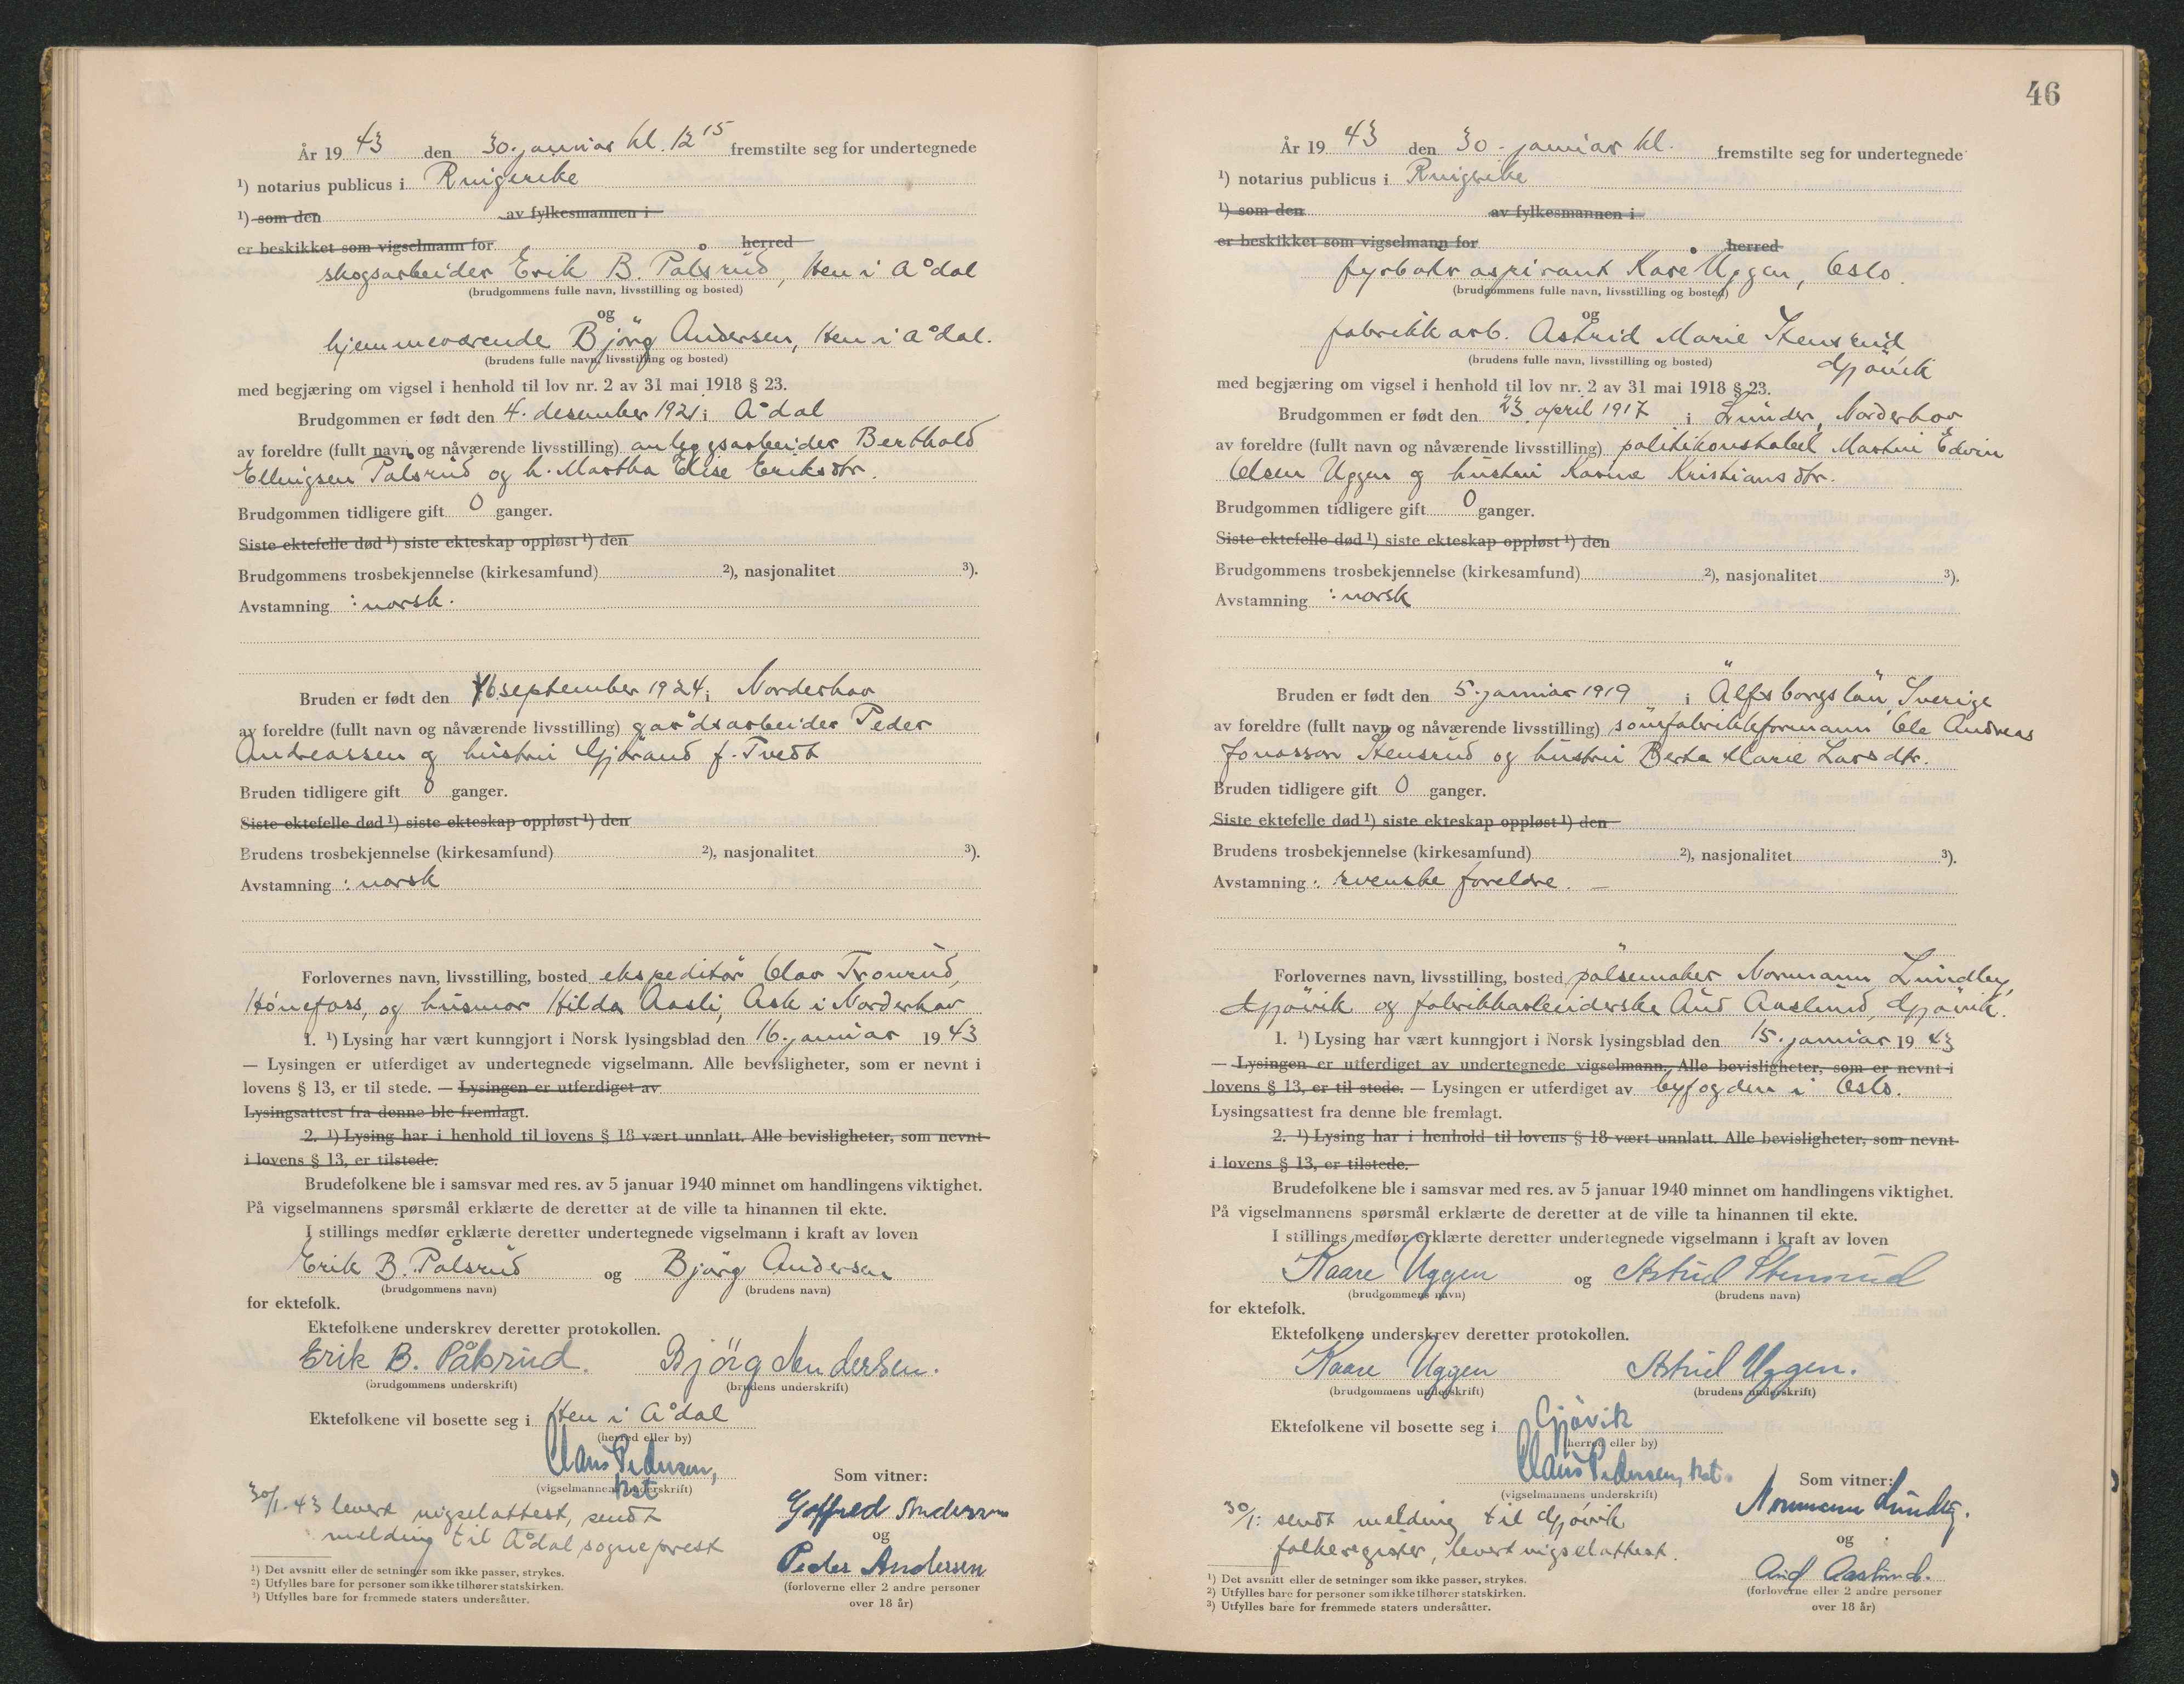 År 19 43 den 30. januar kl. 12 15 fremstilte seg for undertegnede
1) notarius publicus i Ringerike
1) som den av fylkesmannen i
er beskikket som vigselmann for herred
skogsarbeider Erik B. Pålsrud, Hen i Ådal
(brudgommens fulle navn, livsstilling og bosted)
og
hjemmeværende Bjørg Andersen, Hen i Ådal.
(brudens fulle navn, livsstilling og bosted)
med begjæring om vigsel i henhold til lov nr. 2 av 31 mai 1918 § 23.
Brudgommen er født den 4. desember 1921 i Ådal
av foreldre (fullt navn og nåværende livsstilling) anleggsarbeider Berthold
Ellingsen Pålsrud og h. Martha Elise Eriksdtr.
Brudgommen tidligere gift 0 ganger.
Siste ektefelle død 1) siste ekteskap oppløst 1) den
Brudgommens trosbekjennelse (kirkesamfund) 2), nasjonalitet 3).
Avstamning : norsk.
Bruden er født den 16 september 1924 i Norderhov
av foreldre (fullt navn og nåværende livsstilling) gårdsarbeider Peder
Andreassen og hustru Gjørand f. Tvedt
Bruden tidligere gift 0 ganger.
Siste ektefelle død 1) siste ekteskap oppløst 1) den
Brudens trosbekjennelse (kirkesamfund) 2), nasjonalitet 3).
Avstamning : norsk
Forlovernes navn, livsstilling, bosted ekspeditør Olav Tronrud,
Hønefoss, og husmor Hilda Aasli, Ask i Norderhov
1. 1) Lysing har vært kunngjort i Norsk lysingsblad den 16. januar 19 43
— Lysingen er utferdiget av undertegnede vigselmann. Alle bevisligheter, som er nevnt i
lovens § 13, er til stede. — Lysingen er utferdiget av
Lysingsattest fra denne ble fremlagt.
2. 1) Lysing har i henhold til lovens § 18 vært unnlatt. Alle bevisligheter, som nevnt
i lovens § 13, er tilstede.
Brudefolkene ble i samsvar med res. av 5 januar 1940 minnet om handlingens viktighet.
På vigselmannens spørsmål erklærte de deretter at de ville ta hinannen til ekte.
I stillings medfør erklærte deretter undertegnede vigselmann i kraft av loven
Erik B. Pålsrud og Bjørg Andersen
(brudgommens navn) (brudens navn)
for ektefolk.
Ektefolkene underskrev deretter protokollen.
Erik B. Pålsrud. Björg Andersen.
(brudgommens underskrift) (brudens underskrift)
Ektefolkene vil bosette seg i Hen i Ådal
(herred eller by)
Claus Pedersen,
kst
(vigselmannens underskrift)
Som vitner:
30/1.43 levert vigselattest, sendt
melding til Ådal sogneprest
Gotfred Andersen
og
Peder Andersen
(forloverne eller 2 andre personer
over 18 år)
1) Det avsnitt eller de setninger som ikke passer, strykes.
2) Utfylles bare for personer som ikke tilhører statskirken.
3) Utfylles bare for fremmede staters undersåtter.
46
År 19 43 den 30. januar kl. fremstilte seg for undertegnede
1) notarius publicus i Ringerike
1) som den av fylkesmannen i
er beskikket som vigselmann for herred
fyrbøter aspirant Kåre Uggen, Oslo.
(brudgommens fulle navn, livsstilling og bosted)
og
fabrikkarb. Astrid Marie Stensrud
(brudens fulle navn, livsstilling og bosted) Gjøvik
med begjæring om vigsel i henhold til lov nr. 2 av 31 mai 1918 § 23.
Brudgommen er født den 23. april 1917 i Lunder, Norderhov
av foreldre (fullt navn og nåværende livsstilling) politikonstabel Martin Edvin
Olsen Uggen og hustru Karine Kristiansdtr.
Brudgommen tidligere gift 0 ganger.
Siste ektefelle død 1) siste ekteskap oppløst 1) den
Brudgommens trosbekjennelse (kirkesamfund) 2), nasjonalitet 3).
Avstamning : norsk
Bruden er født den 5. januar 1919 i Älfsborgslän, Sverige
av foreldre (fullt navn og nåværende livsstilling) sömfabrikkformann Ole Andreas
Jonasson Stensrud og hustru Berta Marie Larsdtr.
Bruden tidligere gift 0 ganger.
Siste ektefelle død 1) siste ekteskap oppløst 1) den
Brudens trosbekjennelse (kirkesamfund) 2), nasjonalitet 3).
Avstamning : svenske foreldre. —
Forlovernes navn, livsstilling, bosted pølsemaker Normann Lundby,
Gjøvik og fabrikkarbeiderske Aud Aaslund, Gjøvik.
1. 1) Lysing har vært kunngjort i Norsk lysingsblad den 15. januar 19 43
— Lysingen er utferdiget av undertegnede vigselmann. Alle bevisligheter, som er nevnt i
lovens § 13, er til stede. — Lysingen er utferdiget av byfogden i Oslo.
Lysingsattest fra denne ble fremlagt.
2. 1) Lysing har i henhold til lovens § 18 vært unnlatt. Alle bevisligheter, som nevnt
i lovens § 13, er tilstede.
Brudefolkene ble i samsvar med res. av 5 januar 1940 minnet om handlingens viktighet.
På vigselmannens spørsmål erklærte de deretter at de ville ta hinannen til ekte.
I stillings medfør erklærte deretter undertegnede vigselmann i kraft av loven
Kaare Uggen og Astrid Stensrud
(brudgommens navn) (brudens navn)
for ektefolk.
Ektefolkene underskrev deretter protokollen.
Kaare Uggen Astrid Uggen.
(brudgommens underskrift) (brudens underskrift)
Ektefolkene vil bosette seg i Gjøvik
(herred eller by)
Claus Pedersen, kst.
(vigselmannens underskrift)
Som vitner:
30/1: sendt melding til Gjøvik
folkeregister, levert vigselattest.
Normann Lundby.
og
Aud Aaslund.
(forloverne eller 2 andre personer
over 18 år)
1) Det avsnitt eller de setninger som ikke passer, strykes.
2) Utfylles bare for personer som ikke tilhører statskirken.
3) Utfylles bare for fremmede staters undersåtter.